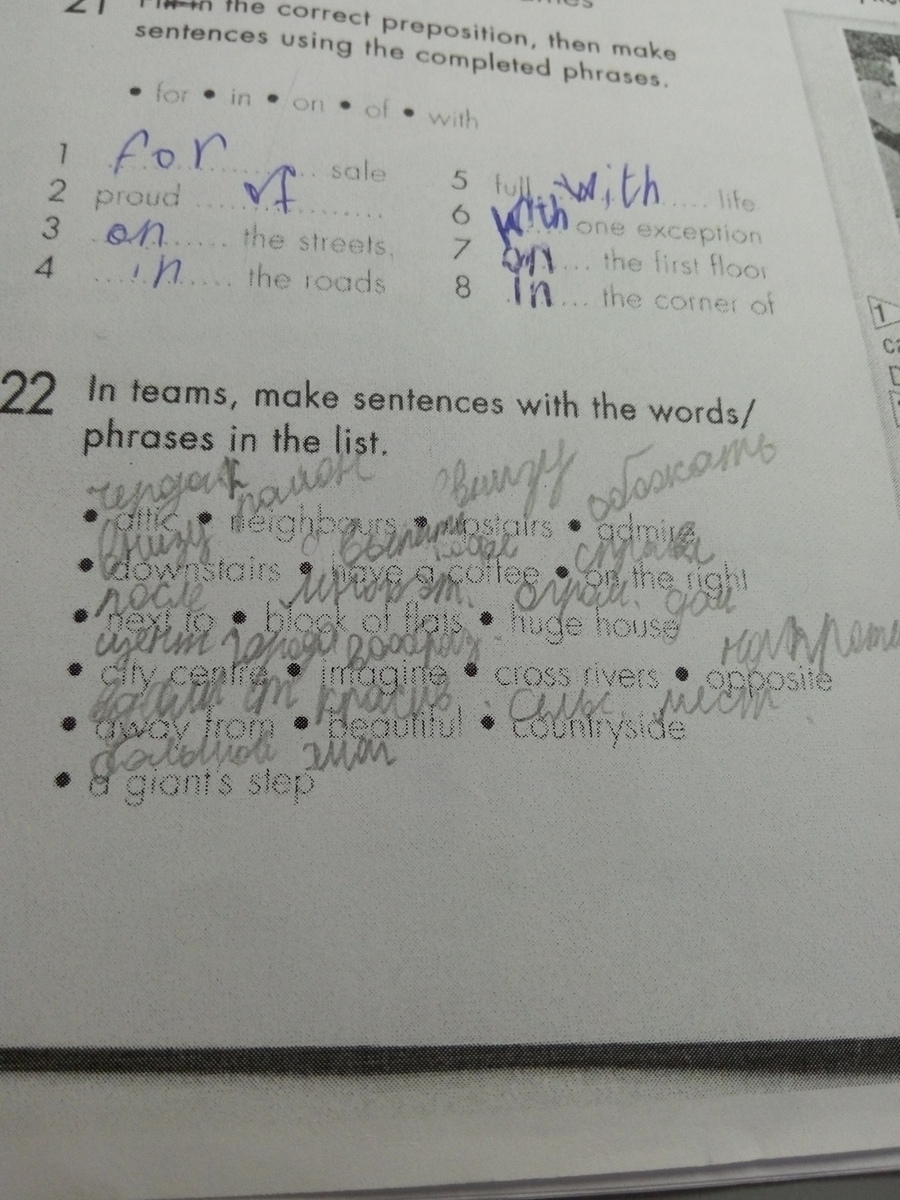 21 Fill in the correct preposition, then make
sentences using the completed phrases.
• for • in • on • of • with
1 for sale
2 proud of
3 on the streets
4 in the roads
5 full with life
6 with one exception
7 on the first floor
8 in the corner of
22 In teams, make sentences with the words/
phrases in the list.
чердак внизу обожать
• attic • neighbours • upstairs • admire
внизу
• downstairs • have a coffee • on the right
после
• next to • block of flats • huge house
центр города
• city centre • imagine • cross rivers • opposite
• away from • beautiful • countryside
большой
• a giant's step
1